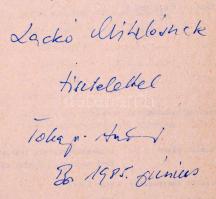 Lackó Miklósnak
tisztelettel
Tokaji András
Bp 1985. június